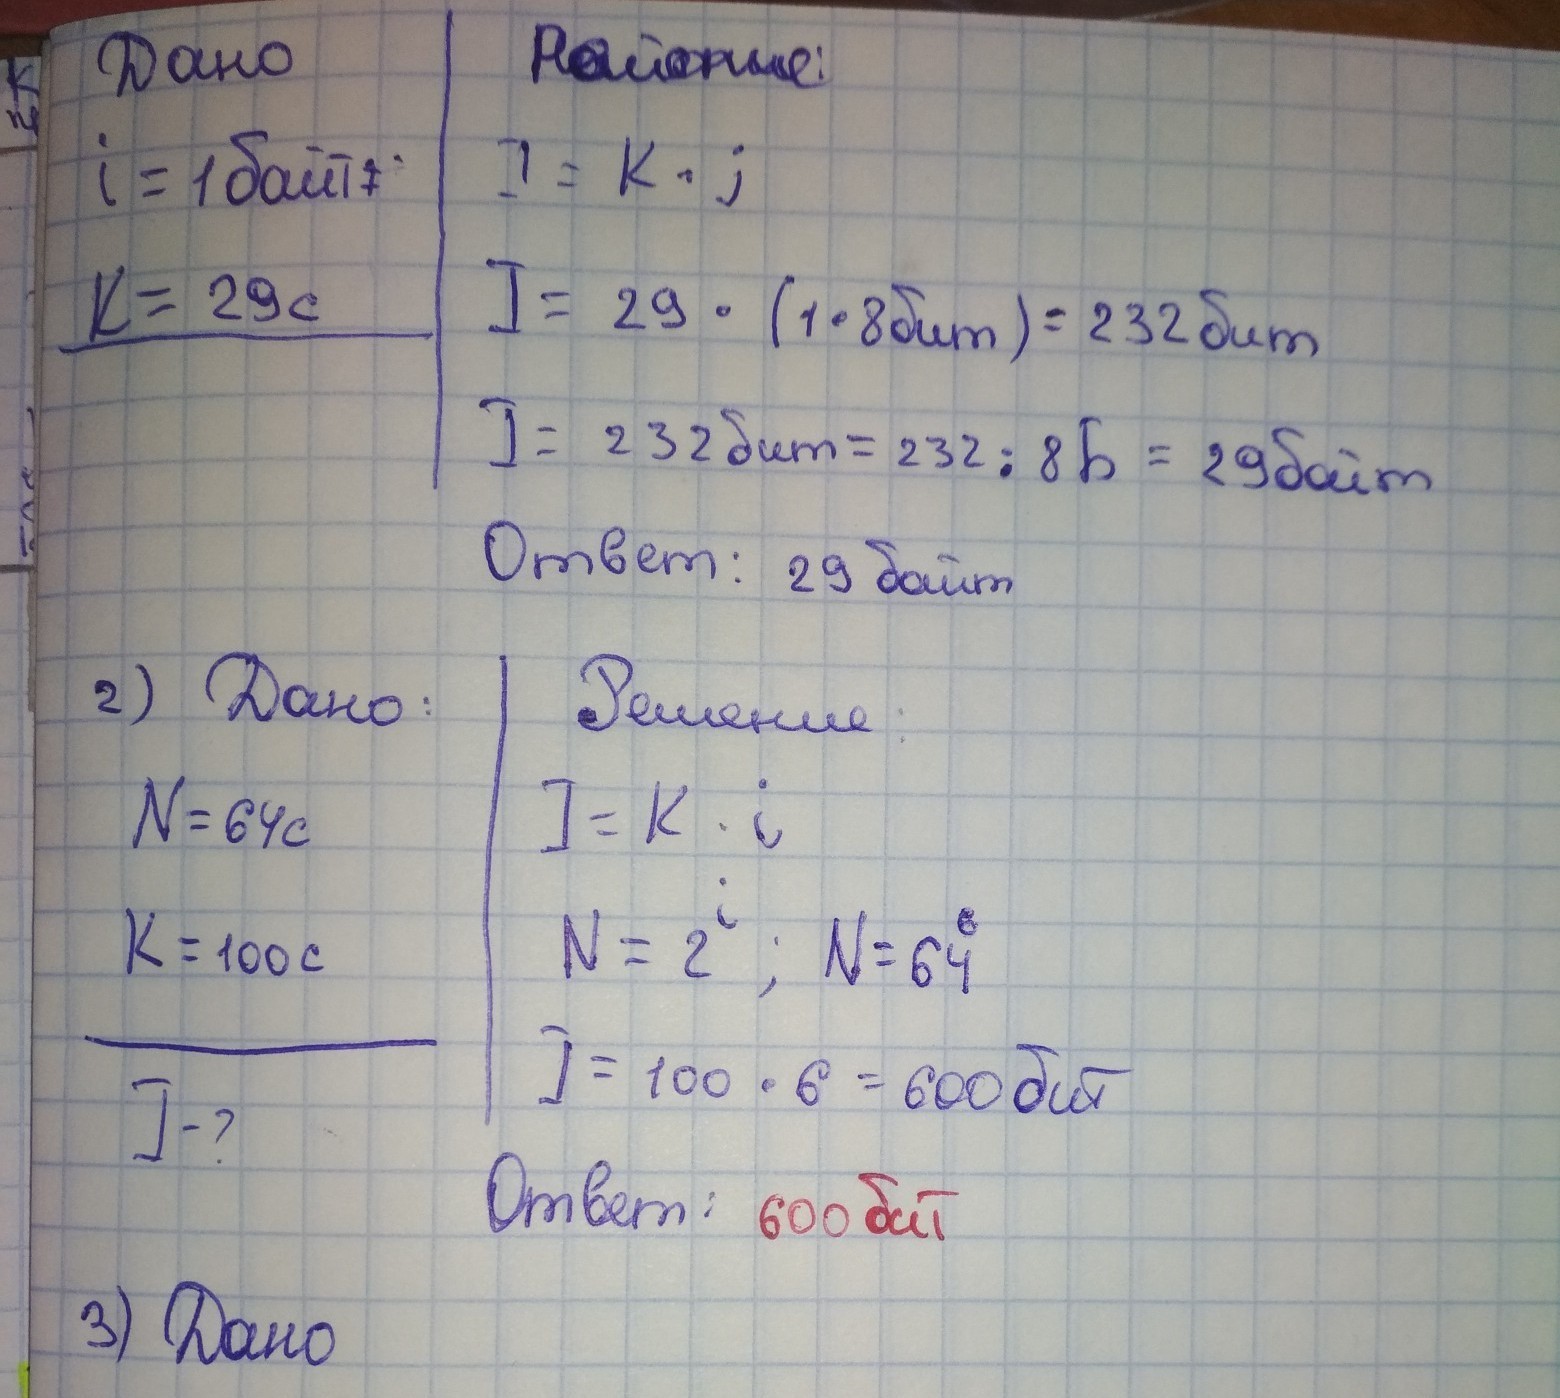 Дано
i = 1 байт
K = 29с
I = K · j
I = 29 · (1 · 8 бит) = 232 бит
I = 232 бит = 232 : 8 Б = 29 байт
Ответ: 29 байт
2) Дано:
N = 64с
K = 100с
I - ?
Решение:
I = K · i
N = 2^i ; N = 64
I = 100 · 6 = 600 бит
Ответ: 600 бит
3) Дано